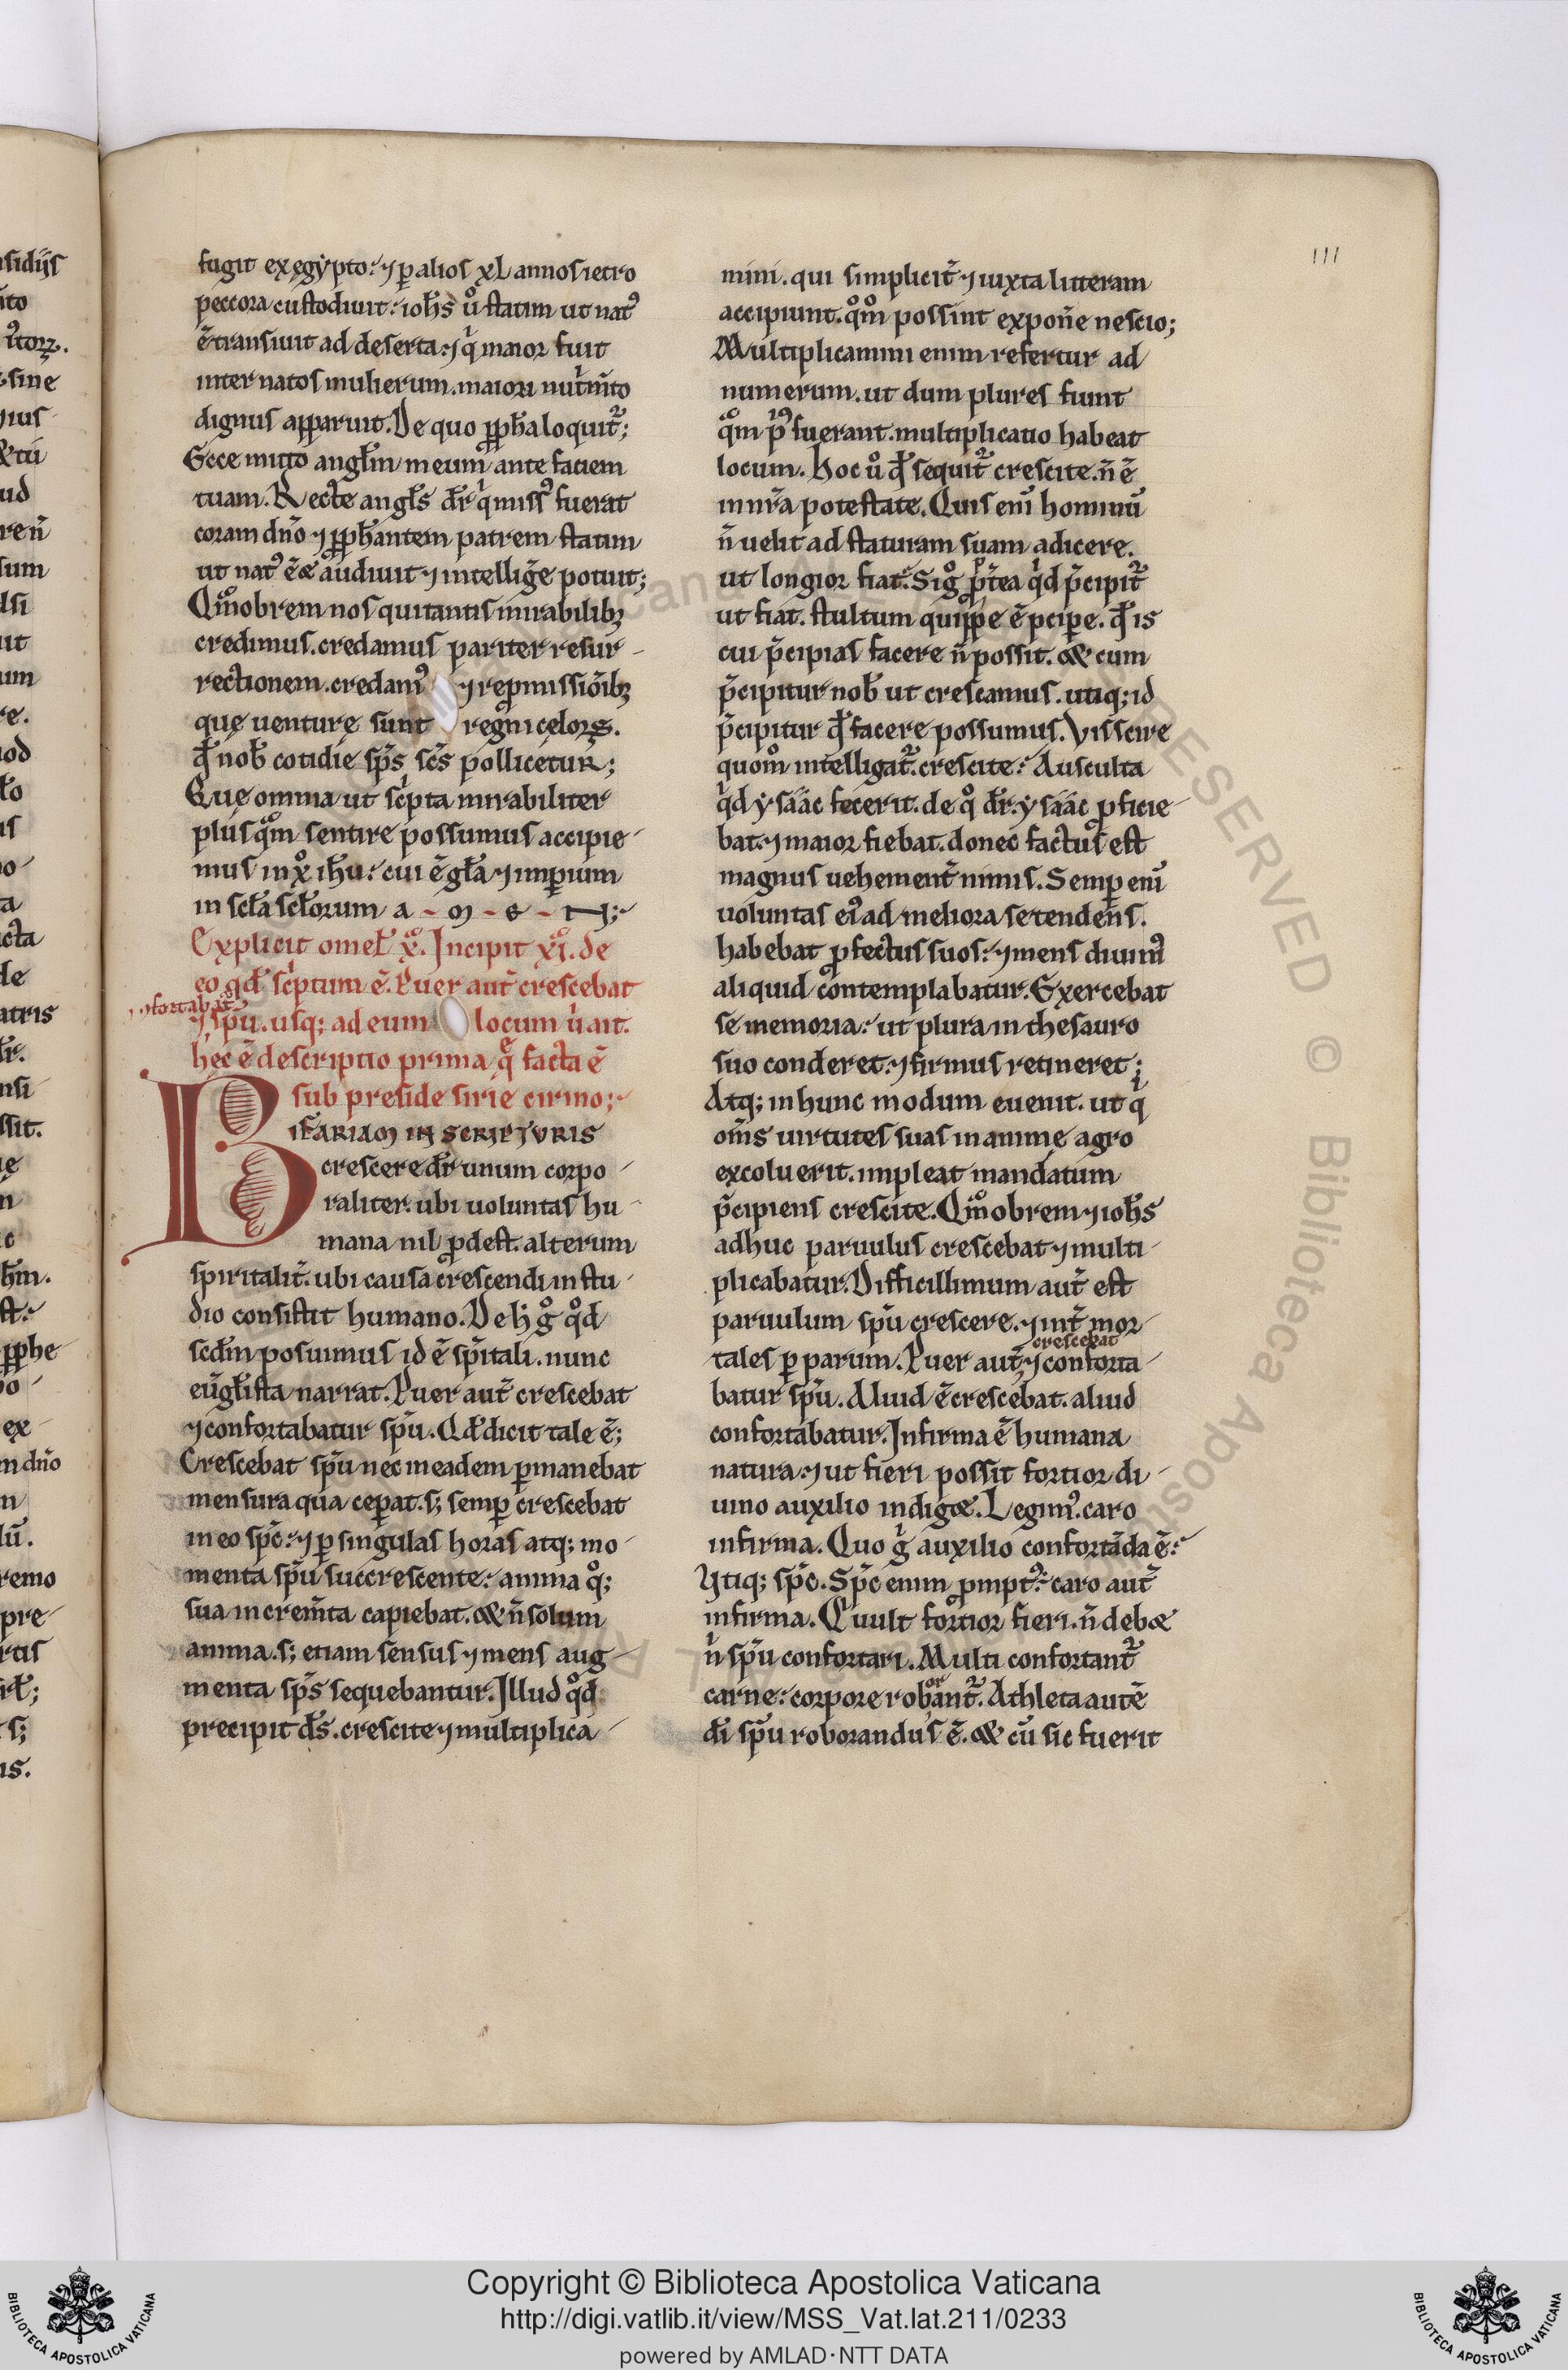 111
fugit ex ęgẏpto:' ⁊ ꝑ alios xL annos ietro
peccora custodiuit:' ioħs ů statim ut natꝰ
ē transiuit ad deserta:' ⁊ qͥ maior fuit
inter natos mulierum. maiori nutͥm̄to
dignus apparuit. De quo ꝓpħa loquit᷑;
Ecce mitto angłm meum ante faciem
tuam. Recte angłs dr̄ qͥ missꝰ fuerat
coram dn̄o ⁊ ꝓpħantem patrem statim
ut natꝰ ēē audiuit ⁊ intelliḡe potuit;
Qm̊obrem nos qui tantis mirabilibꝫ
credimus. credamus pariter resur-
rectionem. credamꝰ ⁊ repmissiōibꝫ
quę uenturę sunt regni cęloꝝ.
qď nob̄ cotidie sp̄s sc̄s pollicetur;
Quę omnia ut scͥpta mirabiliter
plus qm̊ sentire possumus accipie-
mus in xp̊ iħu:' cui ē gła ⁊ imꝑium
in scła scłorum a - m - e - N;
Explicit omeł x̊. Incipit xi̊. de
eo qď scͥptum ē. Puer aut̄ crescebat
⁊ ꝯfortabat᷑
⁊ sp̄u. usq; ad eum locum u̇ ait.
hęc ē descriptio prima q̨ facta ē
sub preside sirię cirino;
BIFARIAM IN SCRIPTVRIS
crescere dr̄ unum corpo-
raliter. ubi uoluntas hu-
mana nil ꝓdest. alterum
spiritalit̄. ubi causa crescendi in stu-
dio consistit humano. De ħ g̊ qd̊
scďm posuimus id ē sp̄itali. nunc
eūgłista narrat. Puer aut̄ crescebat
⁊ confortabatur sp̄u. Qď dicit tale ē;
Crescebat sp̄u nec in eadem ꝑmanebat
mensura qua cęperat. s; semꝑ crescebat
in eo sp̄c:' ⁊ ꝑ singulas horas atq; mo-
menta sp̄u succrescente:' anima q̊;
sua increm̄ta capiebat. & n̄ solum
anima. s; etiam sensus ⁊ mens aug-
menta sp̄s sequebantur. Illud qd̊
precipit d̄s. crescite ⁊ multiplica-
mini. qui simplicit̄ ⁊ iuxta litteram
accipiunt. qm̊ possint expon̄e nescio;
Multiplicamini enim refertur ad
numerum. ut dum plures fiunt
qm̊ pͥꝰ fuerant. multiplicatio habeat
locum. Hoc ů qď sequit᷑ crescite. n̄ ē
in nr̄a potestate. Quis enī hominū
n̄ uelit ad staturam suam adicere.
ut longior fiat:' Sig̊ ꝓpt̄ea qͥd p̄cipit᷑
ut fiat. stultum quippe ē p̄cipe. qď is
cui p̄cipias facere n̄ possit. & cum
p̄cipitur nob̄ ut crescamus. utiq; id
p̄cipitur qď facere possumus. Vis scire
quom̊ intelligat᷑. crescite:' Ausculta
qͥd ẏsaac fecerit. de q̊ dr̄. ẏsaac ꝓficie-
bat. ⁊ maior fiebat. donec factus est
magnus uehement̄ nimis. Semꝑ enī
uoluntas eiꝰ ad meliora se tendens.
habebat ꝓfectus suos:' ⁊ mens diuinꝰ
aliquid contemplabatur. Exercebat
se memoria:' ut plura in thesauro
suo conderet:' ⁊ firmus retineret;
Atq; in hunc modum euenit. ut qͥ
om̄s uirtutes suas in animę agro
excoluerit. impleat mandatum
p̄cipiens crescite. Qm̊obrem ⁊ ioħs
adhuc paruulus crescebat ⁊ multi-
plicabatur. Difficillimum aut̄ est
paruulum sp̄u crescere. ⁊ int̄ mor-
crescebat
tales ꝑ parum. Puer aut̄ ⁊ conforta-
batur sp̄u. Aliud ē crescebat. aliud
confortabatur. Infirma ē humana
natura:' ⁊ ut fieri possit fortior di-
uino auxilio indiget. Legimꝰ. caro
infirma. Quo gͥ auxilio confortāda ē:'
Vtiq; sp̄c. Sp̄c enim ꝓmptꝰ:' caro aut̄
infirma. Qͥ uult fortior fieri. n̄ debet
nͥ sp̄u confortari. Multi confortant᷑
or
carne:' corpore robant᷑. Athleta autē
dī sp̄u roborandus ē. & cū sic fuerit
Copyright © Biblioteca Apostolica Vaticana
http://digi.vatlib.it/view/MSS_Vat.lat.211/0233
powered by AMLAD·NTT DATA
BIBLIOTECA APOSTOLICA VATICANA
BIBLIOTECA APOSTOLICA VATICANA